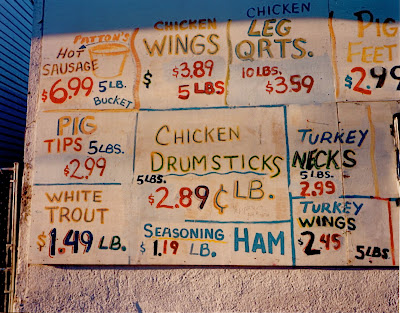 PATTON'S
HOT
SAUSAGE
$6.99 5LB.
BUCKET
CHICKEN
WINGS
$ $3.89
5 LBS
CHICKEN
LEG
QRTS.
10 LBS.
$3.59
PIG
FEET
$2.99
PIG
TIPS 5LBS.
$2.99
CHICKEN
DRUMSTICKS
5LBS.
$2.89 ¢ LB.
TURKEY
NECKS
5 LBS
2.99
WHITE
TROUT
$1.49 LB.
SEASONING HAM
$1.19 LB.
TURKEY
WINGS
$2.45 5LBS